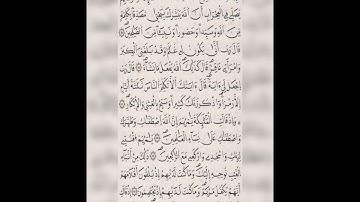 يُصَلِّي فِي الْمِحْرَابِ أَنَّ اللَّهَ يُبَشِّرُكَ بِيَحْيَىٰ مُصَدِّقًا بِكَلِمَةٍ
مِّنَ اللَّهِ وَسَيِّدًا وَحَصُورًا وَنَبِيًّا مِّنَ الصَّالِحِينَ ۝
قَالَ رَبِّ أَنَّىٰ يَكُونُ لِي غُلَامٌ وَقَدْ بَلَغَنِيَ الْكِبَرُ
وَامْرَأَتِي عَاقِرٌ ۖ قَالَ كَذَٰلِكَ اللَّهُ يَفْعَلُ مَا يَشَاءُ ۝ قَالَ رَبِّ
اجْعَل لِّي آيَةً ۖ قَالَ آيَتُكَ أَلَّا تُكَلِّمَ النَّاسَ ثَلَاثَةَ أَيَّامٍ
إِلَّا رَمْزًا ۗ وَاذْكُر رَّبَّكَ كَثِيرًا وَسَبِّحْ بِالْعَشِيِّ وَالْإِبْكَارِ ۝
وَإِذْ قَالَتِ الْمَلَائِكَةُ يَا مَرْيَمُ إِنَّ اللَّهَ اصْطَفَاكِ وَطَهَّرَكِ
وَاصْطَفَاكِ عَلَىٰ نِسَاءِ الْعَالَمِينَ ۝ يَا مَرْيَمُ اقْنُتِي
لِرَبِّكِ وَاسْجُدِي وَارْكَعِي مَعَ الرَّاكِعِينَ ۝ ذَٰلِكَ مِنْ أَنبَاءِ
الْغَيْبِ نُوحِيهِ إِلَيْكَ ۚ وَمَا كُنتَ لَدَيْهِمْ إِذْ يُلْقُونَ أَقْلَامَهُمْ
أَيُّهُمْ يَكْفُلُ مَرْيَمَ وَمَا كُنتَ لَدَيْهِمْ إِذْ يَخْتَصِمُونَ ۝ إِذْ قَالَتِ